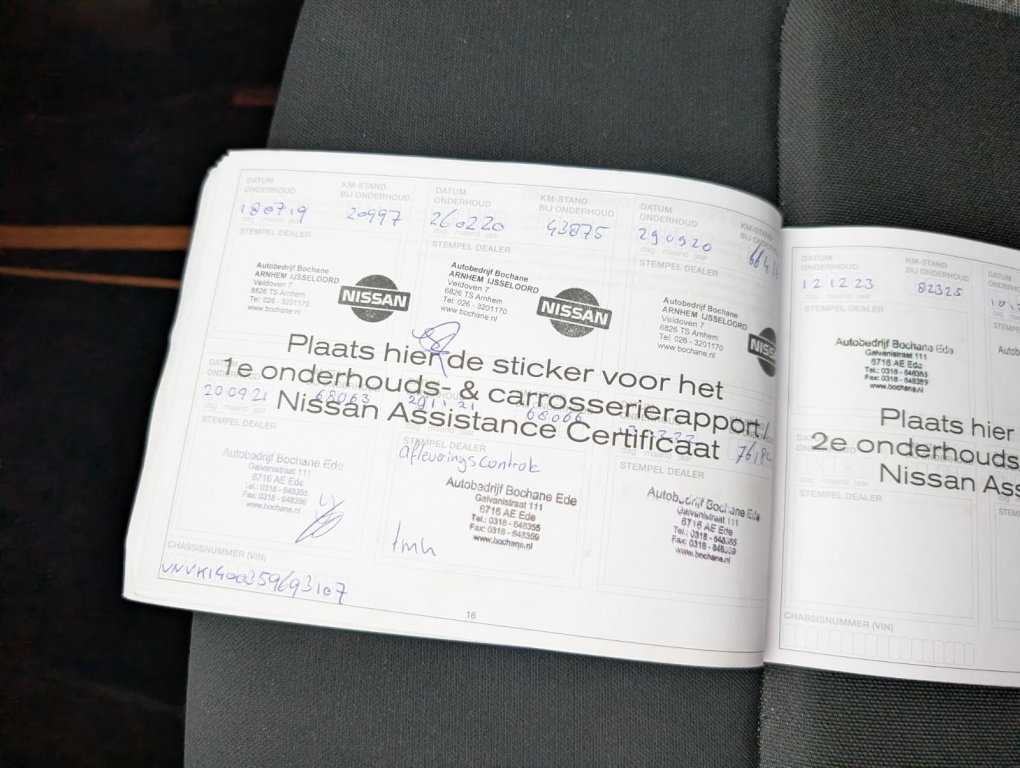 DATUM ONDERHOUD
KM-STAND BIJ ONDERHOUD
180719
20997
dag maand jaar
STEMPEL DEALER
Autobedrijf Bochane
ARNHEM IJSSELOORD
Veldoven 7
6826 TS Arnhem
Tel. 026 - 3201170
www.bochane.nl
NISSAN
DATUM ONDERHOUD
KM-STAND BIJ ONDERHOUD
260220
43875
dag maand jaar
STEMPEL DEALER
Autobedrijf Bochane
ARNHEM IJSSELOORD
Veldoven 7
6826 TS Arnhem
Tel. 026 - 3201170
www.bochane.nl
NISSAN
DATUM ONDERHOUD
KM-STAND
BIJ ONDERHOUD
290920
dag maand jaar
STEMPEL DEALER
Autobedrijf Bochane
ARNHEM IJSSELOORD
Veldoven 7
6826 TS Arnhem
Tel. 026 - 3201170
www.bochane.nl
Plaats hier de sticker voor het
1e onderhouds- & carrosserierapport /
Nissan Assistance Certificaat
20.09.21
68063
dag maand jaar
STEMPEL DEALER
Autobedrijf Bochane Ede
Galvanistraat 111
6716 AE Ede
Tel.: 0318 - 648355
Fax: 0318 - 648359
www.bochane.nl
68066
STEMPEL DEALER
afleveringscontrole
Autobedrijf Bochane Ede
Galvanistraat 111
6716 AE Ede
Tel.: 0318 - 648355
Fax: 0318 - 648359
www.bochane.nl
STEMPEL DEALER
Autobedrijf Bochane Ede
Galvanistraat 111
6716 AE Ede
Tel.: 0318 - 648355
Fax: 0318 - 648359
www.bochane.nl
CHASSISNUMMER (VIN)
16
DATUM ONDERHOUD
KM-STAND BIJ ONDERHOUD
12 12 23
82325
dag maand jaar
STEMPEL DEALER
Autobedrijf Bochane Ede
Galvanistraat 111
6716 AE Ede
Tel.: 0318 - 648355
Fax: 0318 - 648359
www.bochane.nl
Plaats hier
2e onderhouds
Nissan Ass
STEMPEL DEALER
CHASSISNUMMER (VIN)